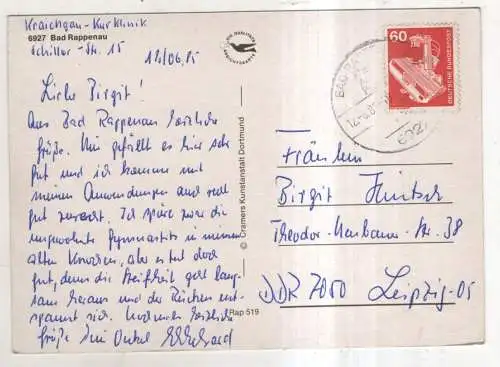 Kraichgau-Kurklinik
6927 Bad Rappenau
Schiller-Str. 15
12/06.85
Liebe Birgit!
Aus Bad Rappenau herzliche
Grüße. Mir gefällt es hier sehr
gut und ich komme mit
meinen Anwendungen auch recht
gut zurecht. Ich spüre zwar die
ungewohnte Gymnastik in meinen
alten Knochen, aber es tut doch
gut, denn die Steifheit geht lang-
sam heraus und der Rücken ent-
spannt sich. Nochmals herzliche
Grüße Dein Onkel Ekkehard
© Cramers Kunstanstalt Dortmund
Rap 519
60
DEUTSCHE BUNDESPOST
BAD RAPPENAU
12.-6.85
6927
Fräulein
Birgit
Theodor-Neubauer-Str. 38
DDR 7050 Leipzig-05